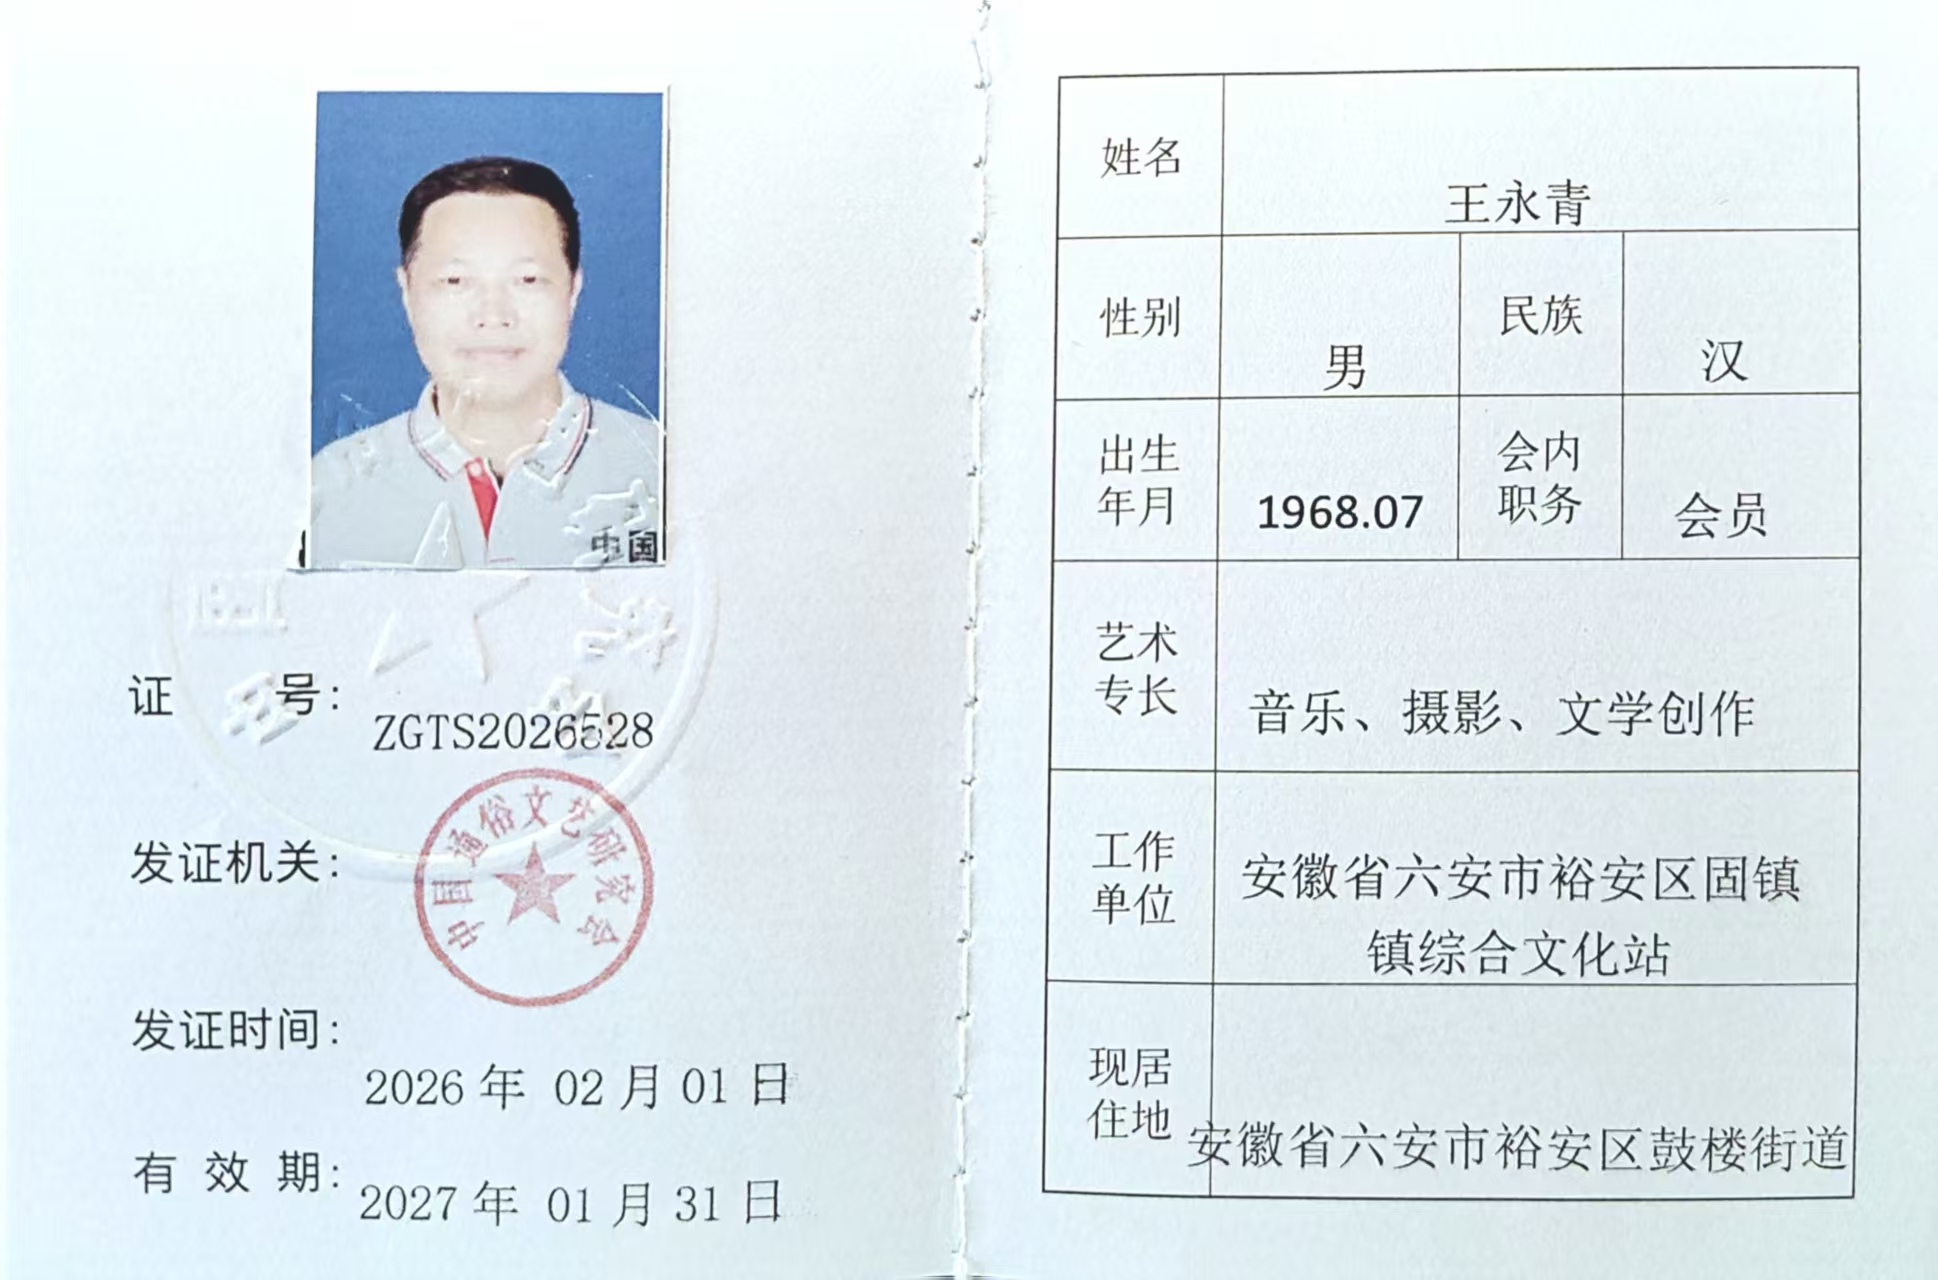 中国
证 号：
ZGTS2026528
发证机关：
中国通俗文艺研究会
发证时间：
2026 年 02 月 01 日
有 效 期：
2027 年 01 月 31 日
姓名 王永青
性别 男 民族 汉
出生年月 1968.07 会内职务 会员
艺术专长 音乐、摄影、文学创作
工作单位 安徽省六安市裕安区固镇
镇综合文化站
现居住地 安徽省六安市裕安区鼓楼街道